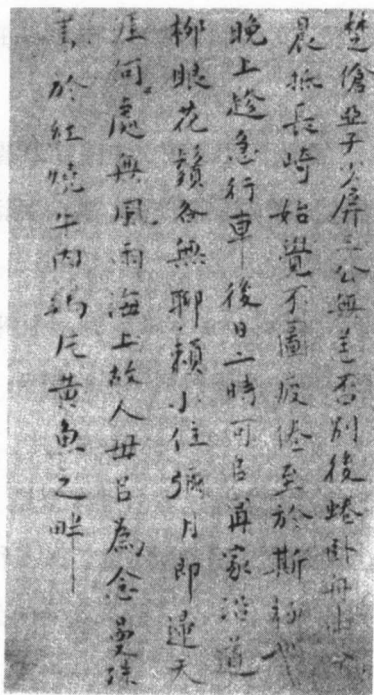 楚傖亞子少屏三公無恙否別後蜷卧舟中今
晨抵長崎始覺不圖疲倦至於斯極也
晚上趁急行車後日二時可㠯甯家沿道
柳眼花鬚各無聊賴小住彌月即還天
涯何處無風雨海上故人毋㠯為念曼殊
書於紅燒牛肉鷄片黃魚之畔